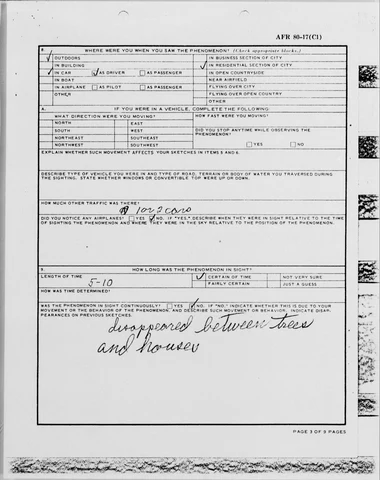 AFR 80-17(C1)
WHERE WERE YOU WHEN YOU SAW THE PHENOMENON? (Check appropriate blocks.)
OUTDOORS IN BUSINESS SECTION OF CITY
IN BUILDING IN RESIDENTIAL SECTION OF CITY
IN CAR AS DRIVER AS PASSENGER IN OPEN COUNTRYSIDE
IN BOAT NEAR AIRFIELD
IN AIRPLANE AS PILOT AS PASSENGER FLYING OVER CITY
OTHER FLYING OVER OPEN COUNTRY
OTHER
A. IF YOU WERE IN A VEHICLE, COMPLETE THE FOLLOWING:
WHAT DIRECTION WERE YOU MOVING? HOW FAST WERE YOU MOVING?
NORTH EAST
SOUTH WEST DID YOU STOP ANYTIME WHILE OBSERVING THE
NORTHEAST SOUTHEAST PHENOMENON?
NORTHWEST SOUTHWEST YES NO
EXPLAIN WHETHER SUCH MOVEMENT AFFECTS YOUR SKETCHES IN ITEMS 5 AND 6.
DESCRIBE TYPE OF VEHICLE YOU WERE IN AND TYPE OF ROAD, TERRAIN OR BODY OF WATER YOU TRAVERSED DURING
THE SIGHTING. STATE WHETHER WINDOWS OR CONVERTIBLE TOP WERE UP OR DOWN.
HOW MUCH OTHER TRAFFIC WAS THERE?
1 or 2 cars
DID YOU NOTICE ANY AIRPLANES? YES NO. IF "YES," DESCRIBE WHEN THEY WERE IN SIGHT RELATIVE TO THE TIME
OF SIGHTING THE PHENOMENON AND WHERE THEY WERE IN THE SKY RELATIVE TO THE POSITION OF THE PHENOMENON.
HOW LONG WAS THE PHENOMENON IN SIGHT?
LENGTH OF TIME CERTAIN OF TIME NOT VERY SURE
5-10 FAIRLY CERTAIN JUST A GUESS
HOW WAS TIME DETERMINED?
WAS THE PHENOMENON IN SIGHT CONTINUOUSLY? YES NO. IF "NO," INDICATE WHETHER THIS IS DUE TO YOUR
MOVEMENT OR THE BEHAVIOR OF THE PHENOMENON, AND DESCRIBE SUCH MOVEMENT OR BEHAVIOR. INDICATE DISAP-
PEARANCES ON PREVIOUS SKETCHES.
disappeared between trees
and houses
PAGE 3 OF 9 PAGES